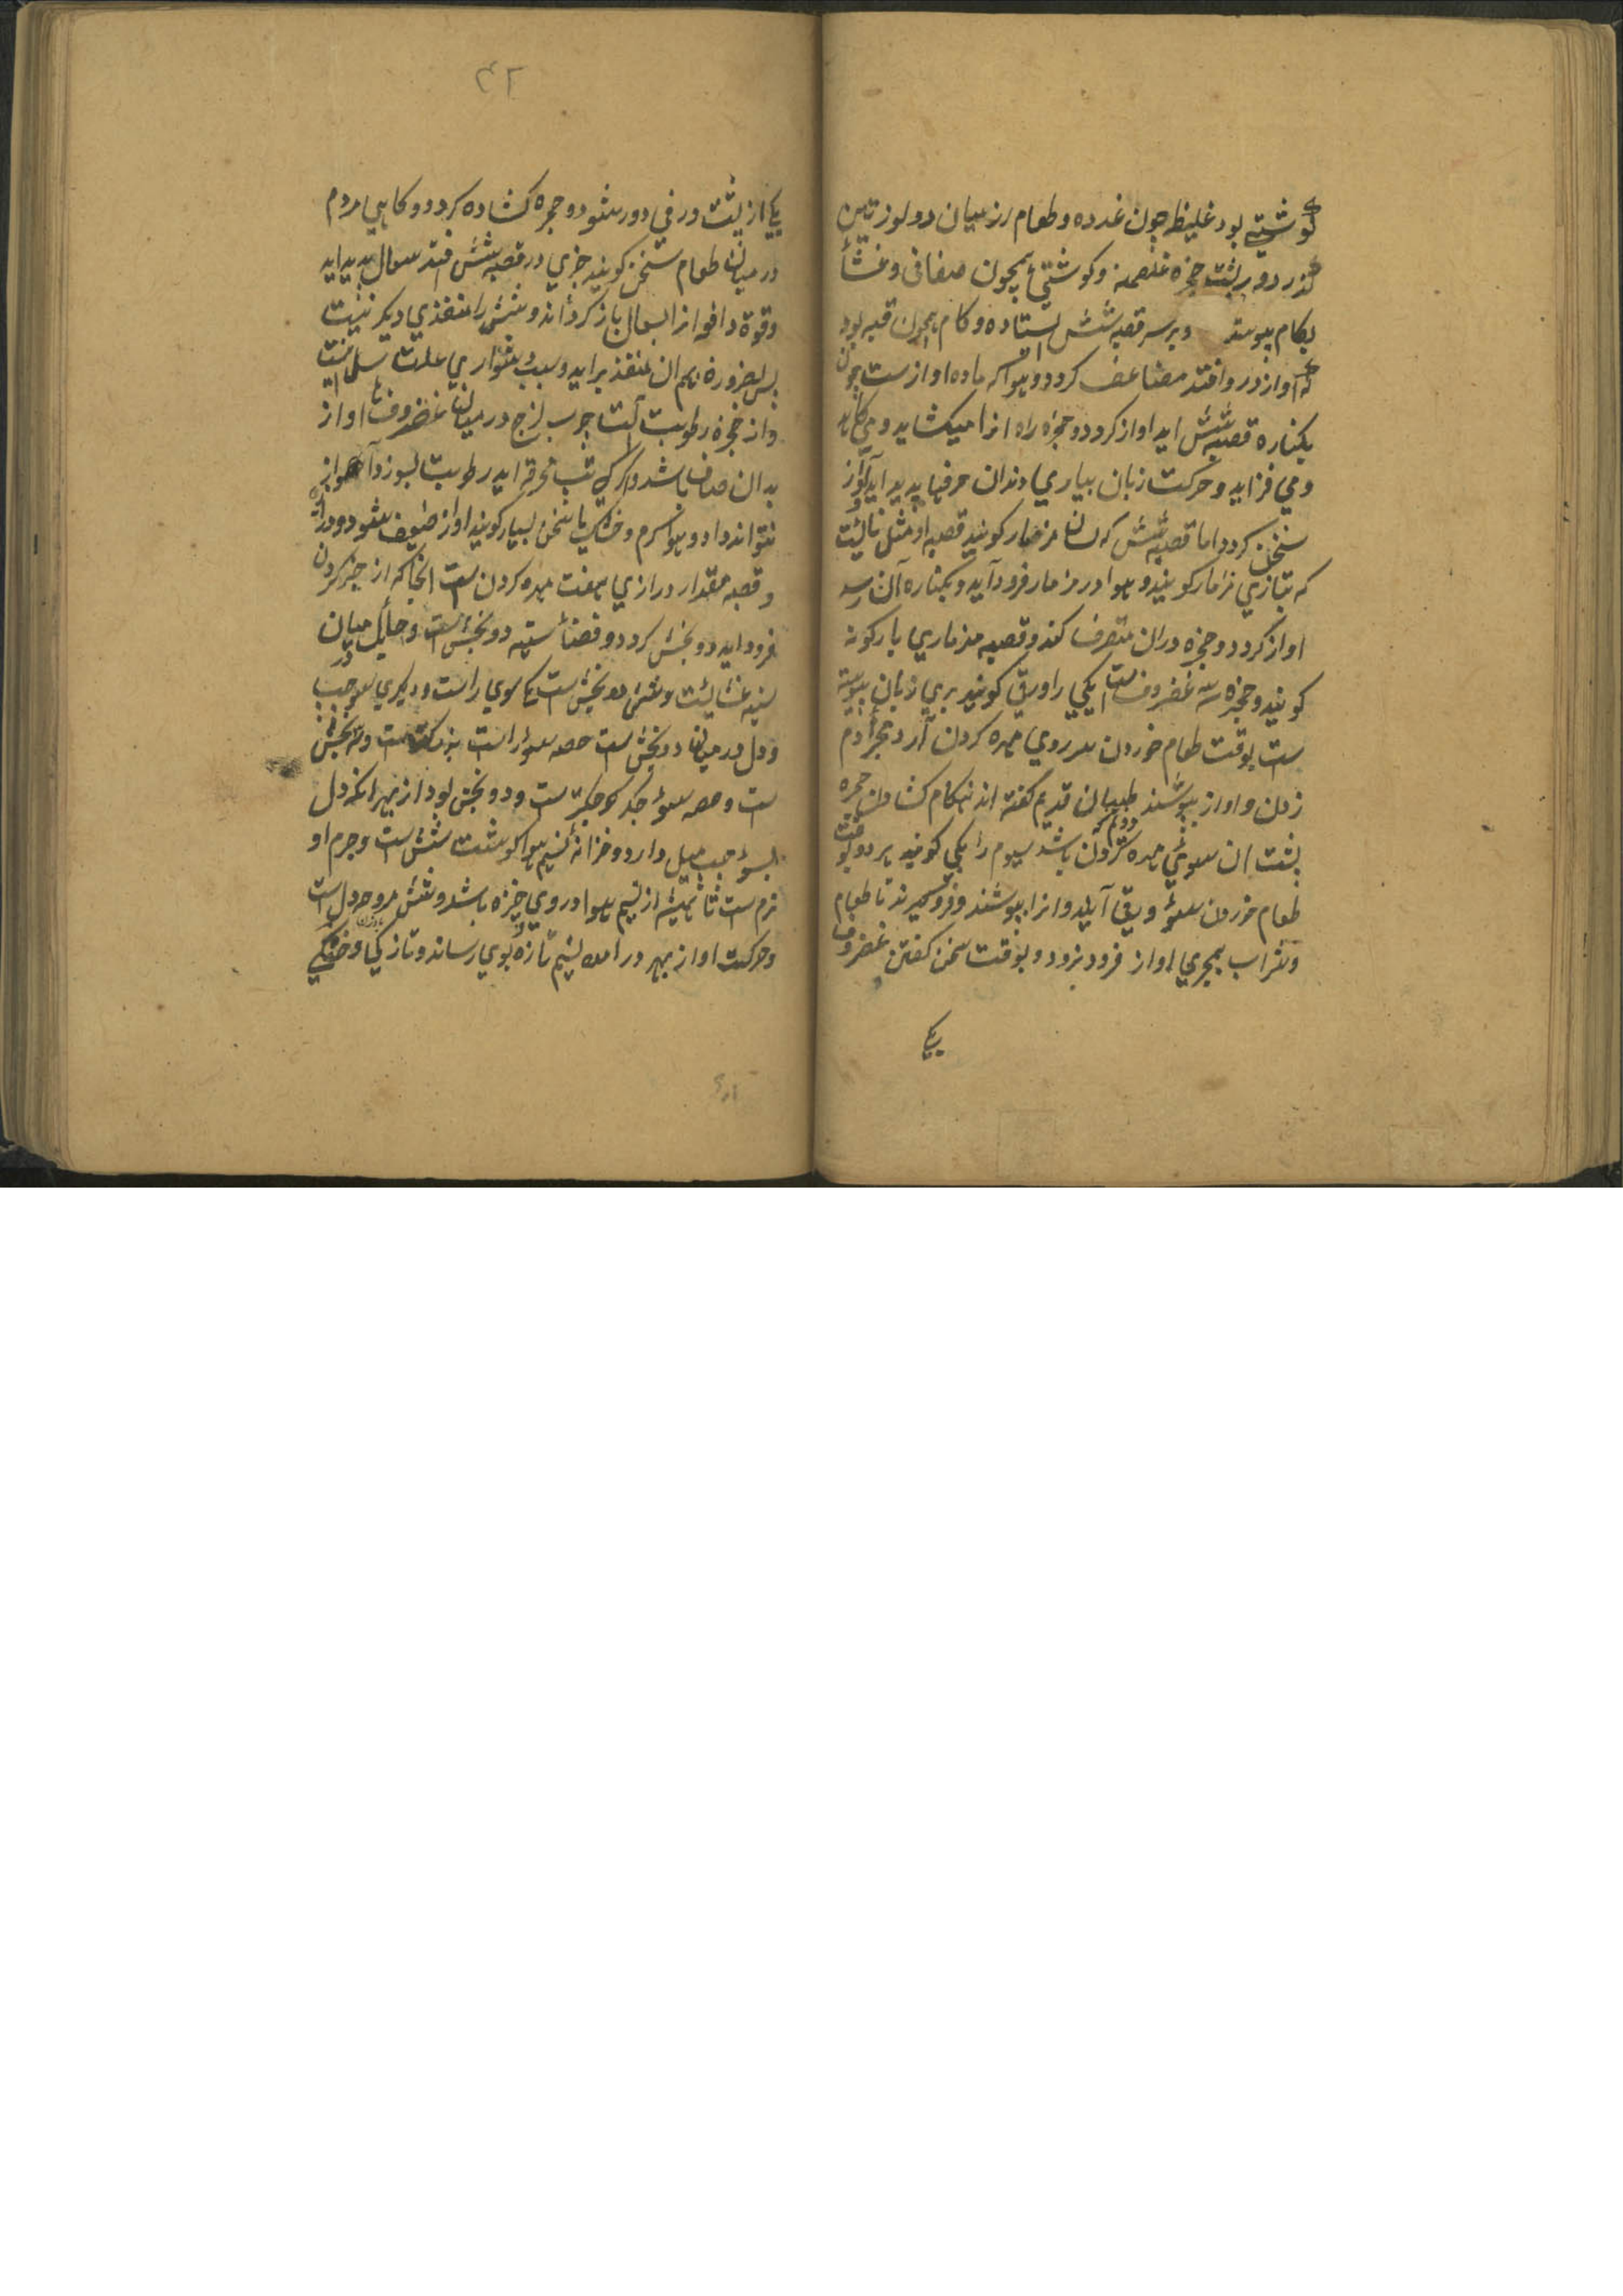 گوشتی بود غلیظ چون غدده و طعام از میان دو لوزتین
گذرد و بر پشت حنجره غلصمه و کوشتی همچون صفاقی و غشا
بکام پیوسته و بر سر قصبه شش استاده و کام همچون قبه بود
که آواز درو افتد مضاعف کردد و هوا که ماده اوازست چون
بکناره قصبه شش اید اواز کردد و حنجره راه انرا میکشاید و می کاهد
و می فزاید و حرکت زبان بیاری دندان حرفها پدید آید و آواز
سخن کردد اما قصبه شش که مزمار کویند قصبه او مثل نائیست
که بتازی مزمار کویند و هوا در مزمار فرود آید و بکناره آن رسد
اواز کردد و حنجره دران متصرف کند و قصبه مزماری بارکونه
کویند و حنجره سه غضروفست یکی را ورقی کویند بری زبان پیوسته
ست بوقت طعام خوردن مهره کردن آرد مجرا دم
زدن و اواز بپوشند طبیبان قدیم کفته اند نکام کشادن حنجره
پشت ان سوی مهره کردن باشد سیوم را یکی کویند بر دو وقت
طعام خوردن سوی ورقی آیند و انرا بپوشند و فرو کیرند تا طعام
و شراب بمجری اواز فرود نرود و بوقت سخن کفتن غضروف
یکی
۴۲
یکی از پشت ورقی دور شود و حنجره کشاده کردد و کاهی مردم
در میان طعام سخن کویند چیزی در قصبه شش افتد سعال پدید اید
و قوة دافعه از السعال باز کردند و شش را منفذی دیکر نیست
پس بضرورة هم ان منفذ براید و سبب دشواری علت سل اینست
و از حنجره رطوبت است چرب لزج در میان غضروفها تا اواز
بدان صاف باشد و اکر کسی تب محرقه اید رطوبت بسوزد آواز
نتواند داد و هوا کرم و خشک یا سخن بسیار کویند اواز ضعیف شود
و قصبه مقدار درازی هفت مهره کردن ست انجا که از چنبر کردن
فرود اید دو بخش کردد و فضای سینه دو بخش است و حایل میان
سینه غشائیست و شش دو بخش است یکی سوی راست و دیکری سو چپ
و دل در میان دو بخش است حصه سوی راست بزرکترست و سه بخش
ست و حصه سوی چپ کوچکترست و دو بخش بود از بهر انکه دل
بسوی چپ میل دارد و خزانه نسیم هوا کوشت شش ست و جرم او
نرم ست تا همیشه از نسیم هوا در وی چیزی باشد و شش مروحه دل است
و حرکت او از بهر در امدن نسیم تازه بوی رساند و تازکی و خنکی